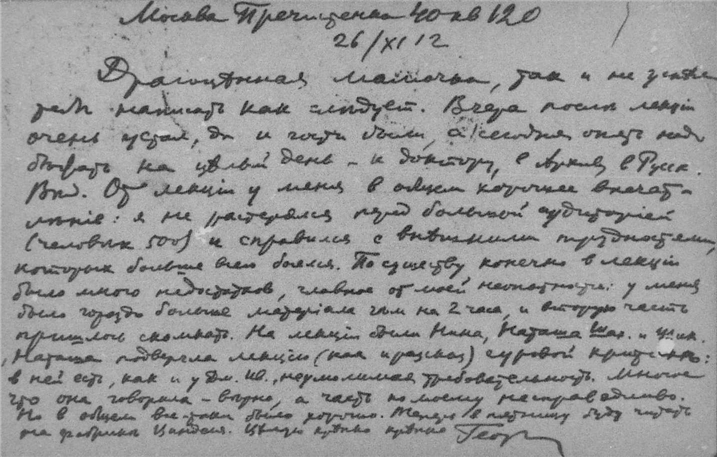 Москва Пречистенка 40 кв 120
26/XI 12
Драгоцѣнная мамочка, так и не успѣла
тебѣ написать как слѣдует. Вчера послѣ лекціи
очень устал, да и гости были, а сегодня опять надо
бѣжать на цѣлый день – к доктору, в Архив, в Русск.
Вѣд. От лекціи у меня в общем хорошее впечат-
лѣніе: я не растерялся перед большой аудиторіей
(человѣк 500) и справился с внѣшними трудностями,
которых больше всего боялся. По существу конечно в лекціи
было много недостатков, главное от моей неопытности: у меня
было гораздо больше матеріала чѣм на 2 часа, и вторую часть
пришлось скомкать. На лекціи были Нина, Наташа Шах. и
Наташа подвергла лекцію (как и рассказ) суровой критикѣ:
в ней есть, как и у Дм. Ив., неумолимая требовательность. Многое
что она говорила – вѣрно, а часть по моему несправедливо.
Но в общем все таки было хорошо. Теперь в пятницу буду читать
на фабрикѣ Цинделя. Цѣлую крѣпко крѣпко Георг